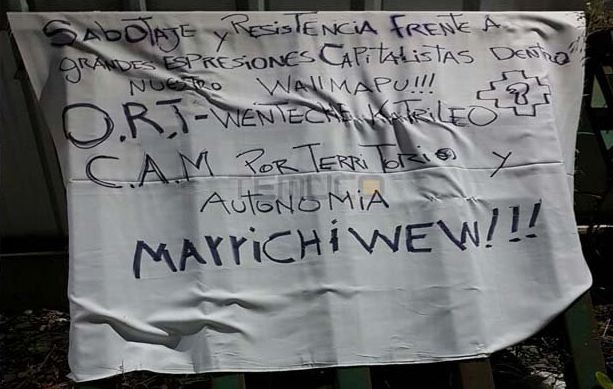 SABOTAJE y RESISTENCIA FRENTE A
GRANDES ESPRESIONES CAPITALISTAS DENTRO
NUESTRO WALLMAPU!!!
O.R.T-WENTECHE KATRILEO
C.A.M POR TERRITORIO y
AUTONOMIA
MARRICHIWEW!!!